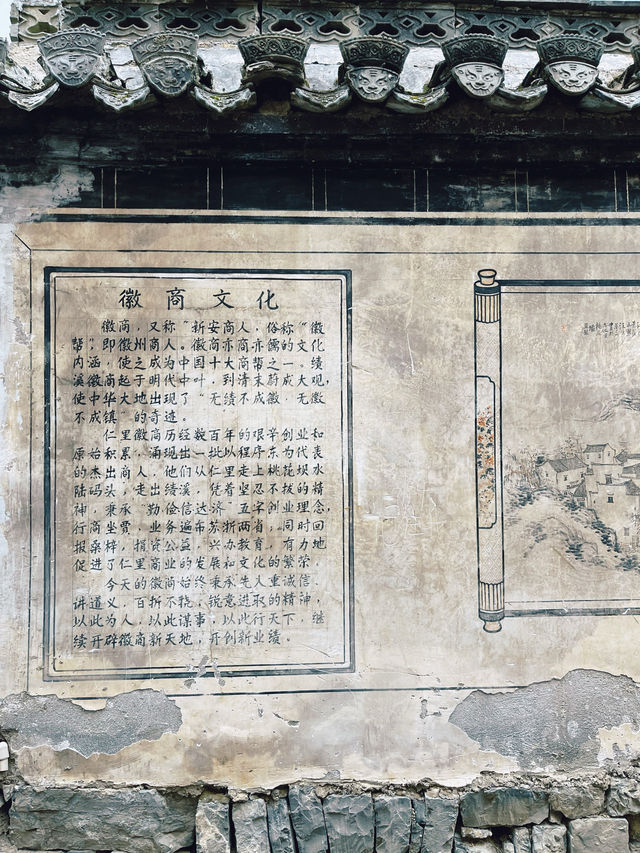 徽商文化
徽商,又称“新安商人,俗称“徽
帮”,即徽州商人。徽商亦商亦儒的文化
内涵,使之成为中国十大商帮之一。大绩
溪徽商起于明代中叶,到清末蔚成大观,
使中华大地出现了“无绩不成徽,无徽
不成镇”的奇迹。
仁里徽商历经数百年的艰辛创业和
原始积累,涌现出一批以程序东为代表
的杰出商人,他们从仁里走上桃花坝水
陆码头,走出绩溪,凭着坚忍不拔的精
神,秉承勤俭诚信达济”五字,创业理念
行商坐贾,业务遍布苏浙两省,同时回
报桑梓,捐资公益,兴办教育,有力地
促进了仁里商业的发展和文化的繁荣.
今天的徽商始终秉承先人重诚信.
讲道义,百折不挠,锐意进取的精神,
以此为人,以此谋事,以此行天下,继
续开辟徽商新天地,开创新业绩。